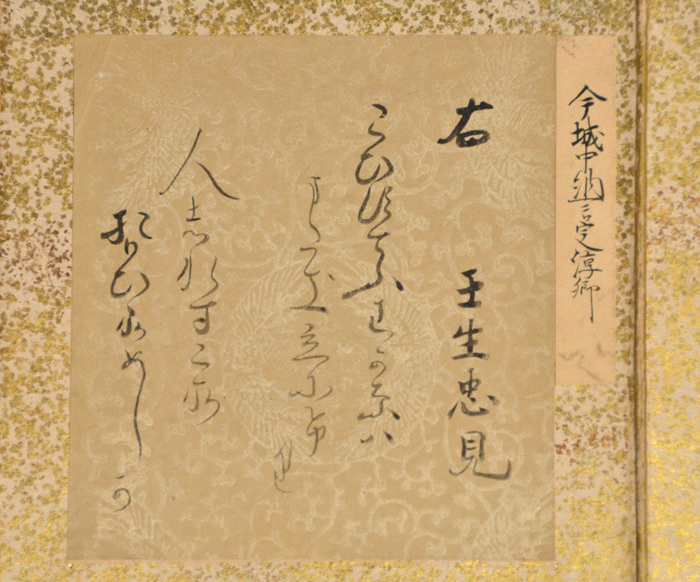 今城中納言定淳卿
右　壬生忠見
こひすてふわか名は
またき立にけり
人しれすこそ
おもひそめしか